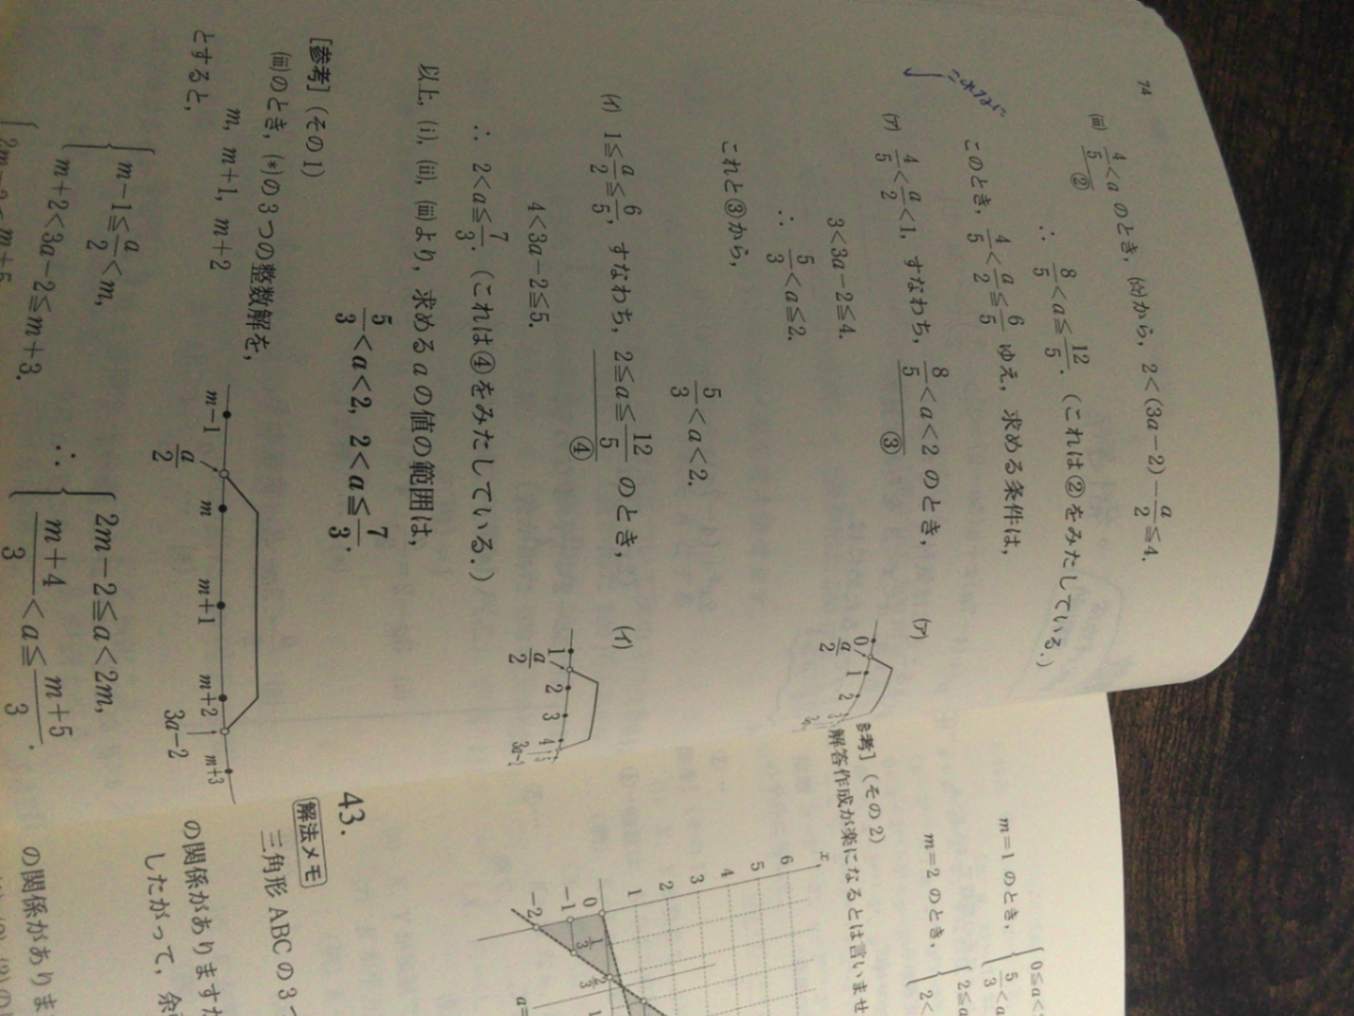 74
(iii) 4/5 < a のとき, (か)から, 2<(3a−2)−a/2≦4.
②
∴ 8/5 < a ≦ 12/5. (これは②をみたしている.)
このとき, 4/5 < a/2 ≦ 6/5 ゆえ, 求める条件は,
(ア) 4/5 < a/2 < 1, すなわち, 8/5 < a < 2 のとき,
③
3<3a−2≦4.
∴ 5/3 < a ≦ 2.
これと③から,
5/3 < a < 2.
(イ) 1 ≦ a/2 ≦ 6/5, すなわち, 2 ≦ a ≦ 12/5 のとき,
④
4<3a−2≦5.
∴ 2 < a ≦ 7/3. (これは④をみたしている.)
以上, (i), (ii), (iii)より, 求める a の値の範囲は,
5/3 < a < 2, 2 < a ≦ 7/3.
(ア)
0 a/2 1 2
(イ)
1 a/2 2 3 4
[参考] (その1)
(iii)のとき, (*)の3つの整数解を,
m, m+1, m+2
とすると,
m−1 ≦ a/2 < m,
m+2<3a−2≦m+3.
∴ 2m−2≦a<2m,
m+4/3 < a ≦ m+5/3.
m−1 a/2 m m+1 m+2 3a−2 m+3
m=1 のとき,
m=2 のとき,
考] (その2)
解答作成が楽になるとは言いませ
x
6
5
4
3
2
1
0
−1
−2
43.
解法メモ
三角形 ABC の3
の関係がありますた
したがって, 余
の関係がありま